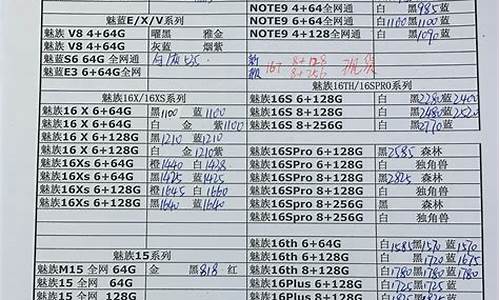 NOTE9 4+64全网通 白 黑985蓝
魅蓝E/X/V系列 NOTE9 6+64全网通 白1100黑1100
魅族 V8 4+64G 曜黑 雅金 NOTE9 4+128全网通 白 黑1090蓝
魅族 V8 4+64G 灰蓝 烟紫
魅蓝S6 64G 全网通
魅蓝E3 6+64G全网通 16T 8+128
8+256
魅族16X/16XS系列 魅族16TH/16SPRO系列
魅族16 X 6+64G 黑1100 蓝1100 魅族16S 6+128G 白 黑2280蓝2400
魅族16 X 6+64G 白 金 紫1100 魅族16S 8+128G 白 黑2480蓝2520
魅族16 X 6+128G 黑1210蓝 魅族16S 8+256G 白 黑2770蓝
魅族16 X 6+128G 白 金 1210紫
魅族16Xs 6+64G 橙1440 白1428 魅族16SPro 6+128G 黑2585 森林
魅族16Xs 6+64G 黑1425 蓝1425 魅族16SPro 6+128G 白 独角兽
魅族16Xs 6+128G 橙1645 白1660 魅族16SPro 8+128G 黑2825 森林
魅族16Xs 6+128G 黑1640 蓝1640 魅族16SPro 8+128G 白 独角兽
魅族16SPro 8+256G 黑 森林
魅族16SPro 8+256G 白 独角兽
魅族15系列 魅族16th 6+64G 白1585黑1570蓝1570
魅族M15 全网 64G 金 黑818 红 魅族16th 6+128G 白 黑1720蓝1675
魅族15 全网 64G 魅族16th 8+128G 白1780黑1780蓝1780
魅族15 全网 128G 魅族16Plus 6+128G 白1725黑1725蓝
魅族16Plus 8+128G